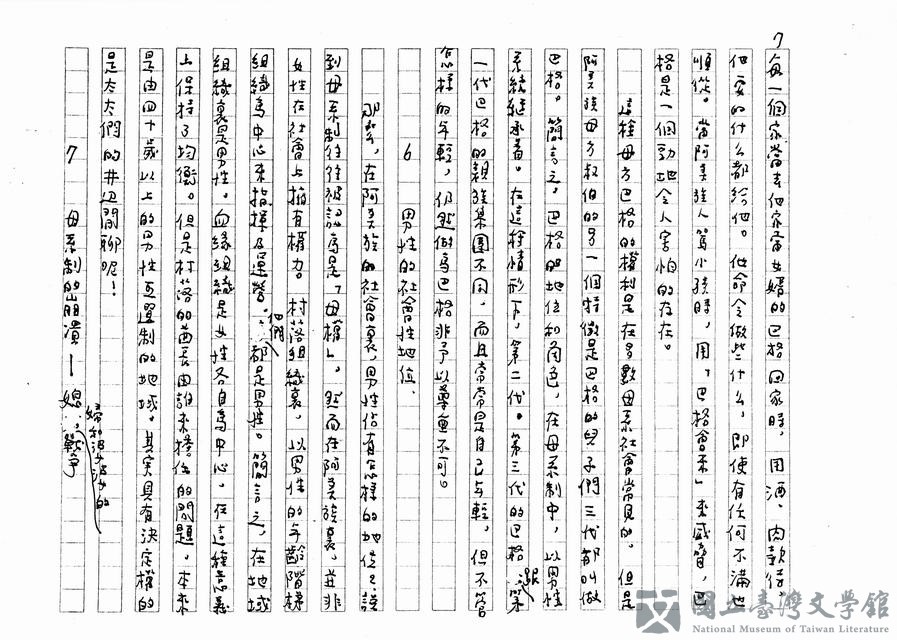 7
每一個家當去他家當女婿的巴格回家時,用酒、肉款待,
他要的什么都給他。他命令做些什么,即使有任何不滿也
順從。當阿美族人罵小孩時,用「巴格會來」來威脅,巴
格是一個勁地令人害怕的存在。
這種母方巴格的權利是在多數母系社會常見的。但是
阿美族母方叔伯的另一個特徵是巴格的兒子們三代都叫做
巴格。簡言之,巴格的地位和角色,在母系制中,以男性
系統繼承着。在這種情形下,第二代。第三代的巴格跟第
一代巴格的親族集團不同,而且常常是自己年輕,但不管
怎樣的年輕,仍然做為巴格非予以尊重不可。
6 男性的社會性地位、
那麼,在阿美族的社會裏,男性佔有怎樣的地位?談
到母系制往往被認為是「母權」。然而在阿美族裏,並非
女性在社會上擁有權力。村落組織裏,以男性的年齡階梯
組織為中心來指揮及運營。他們都是男性。簡言之,在地域
組織裏是男性。血緣組織是女性各自為中心,在這種意義
上保持了均衡。但是村落的酋長由誰來擔任的問題,本來
是由四十歲以上的男性互選制的地域。其實具有決定權的
是太太們的井边閒聊呢!
7 母系制的崩潰—媳婦和婆婆的戰爭
國立臺灣文學館
National Museum of Taiwan Literature